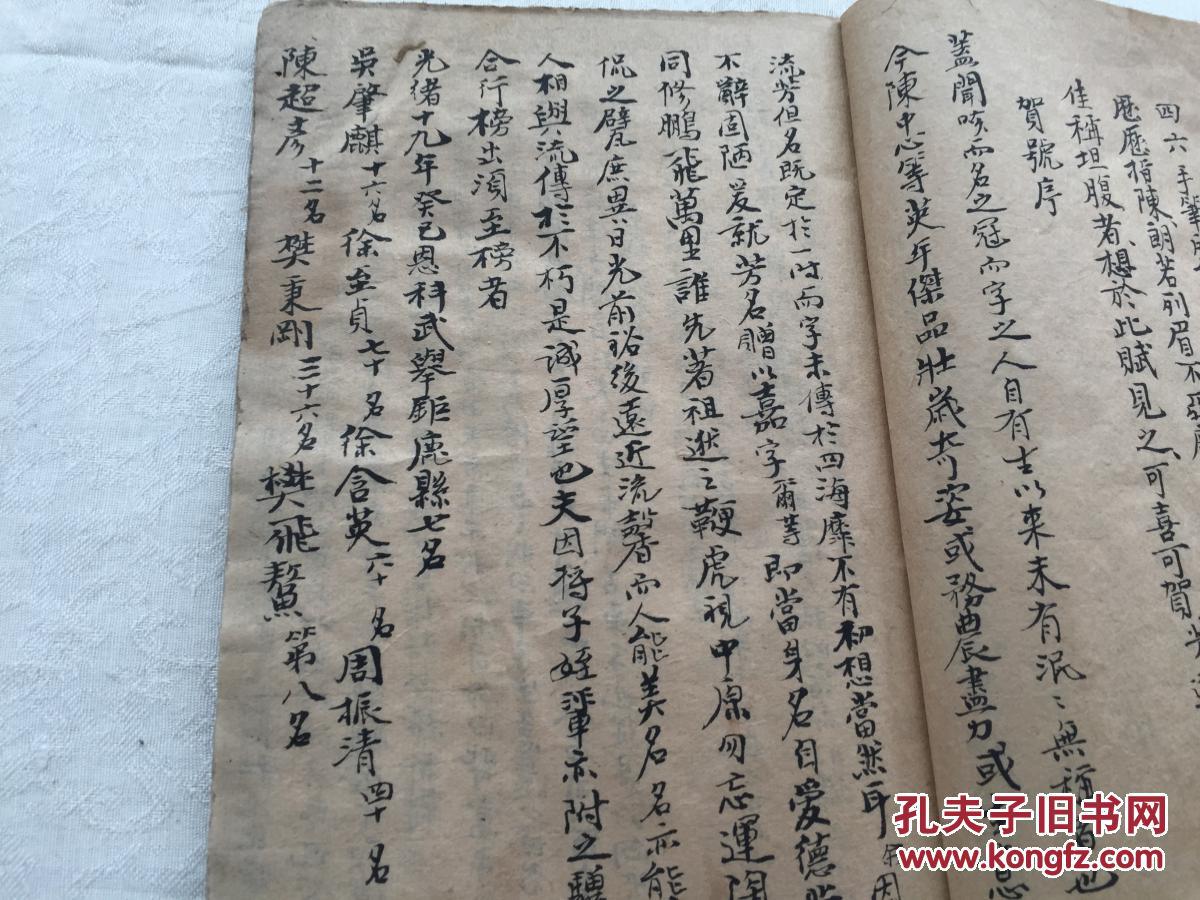 四六手
歷歷將陳朗若列眉不
佳稱坦腹者想於此賦見之可喜可賀
賀號序
蓋聞咳而名之冠而字之人自有生以來未有泯〻無稱者也
今陳中心等英年傑品壯歲奇姿或務農盡力或
流芳但名既定於一时而字未傳於四海靡不有初想當然耳 余因
不辭固陋爰就芳名贈以嘉字爾等即當身名自愛德
同修鵬飛萬里誰先著祖逖之鞭虎視中原勿忘運陶
侃之甓庶異日光前裕後遠近流馨而人能美名名亦能
人相與流傳於不朽是誠厚望也夫因將子姪輩亦附之驥
合行榜出須至榜者
光緒十九年癸巳恩科武舉鉅鹿縣七名
吳肇麒十六名 徐至貞七十名 徐含英六十名 周振清四十名
陳超彥十二名 樊秉剛三十六名 樊飛鰲第八名
孔夫子旧书网
www.kongfz.com